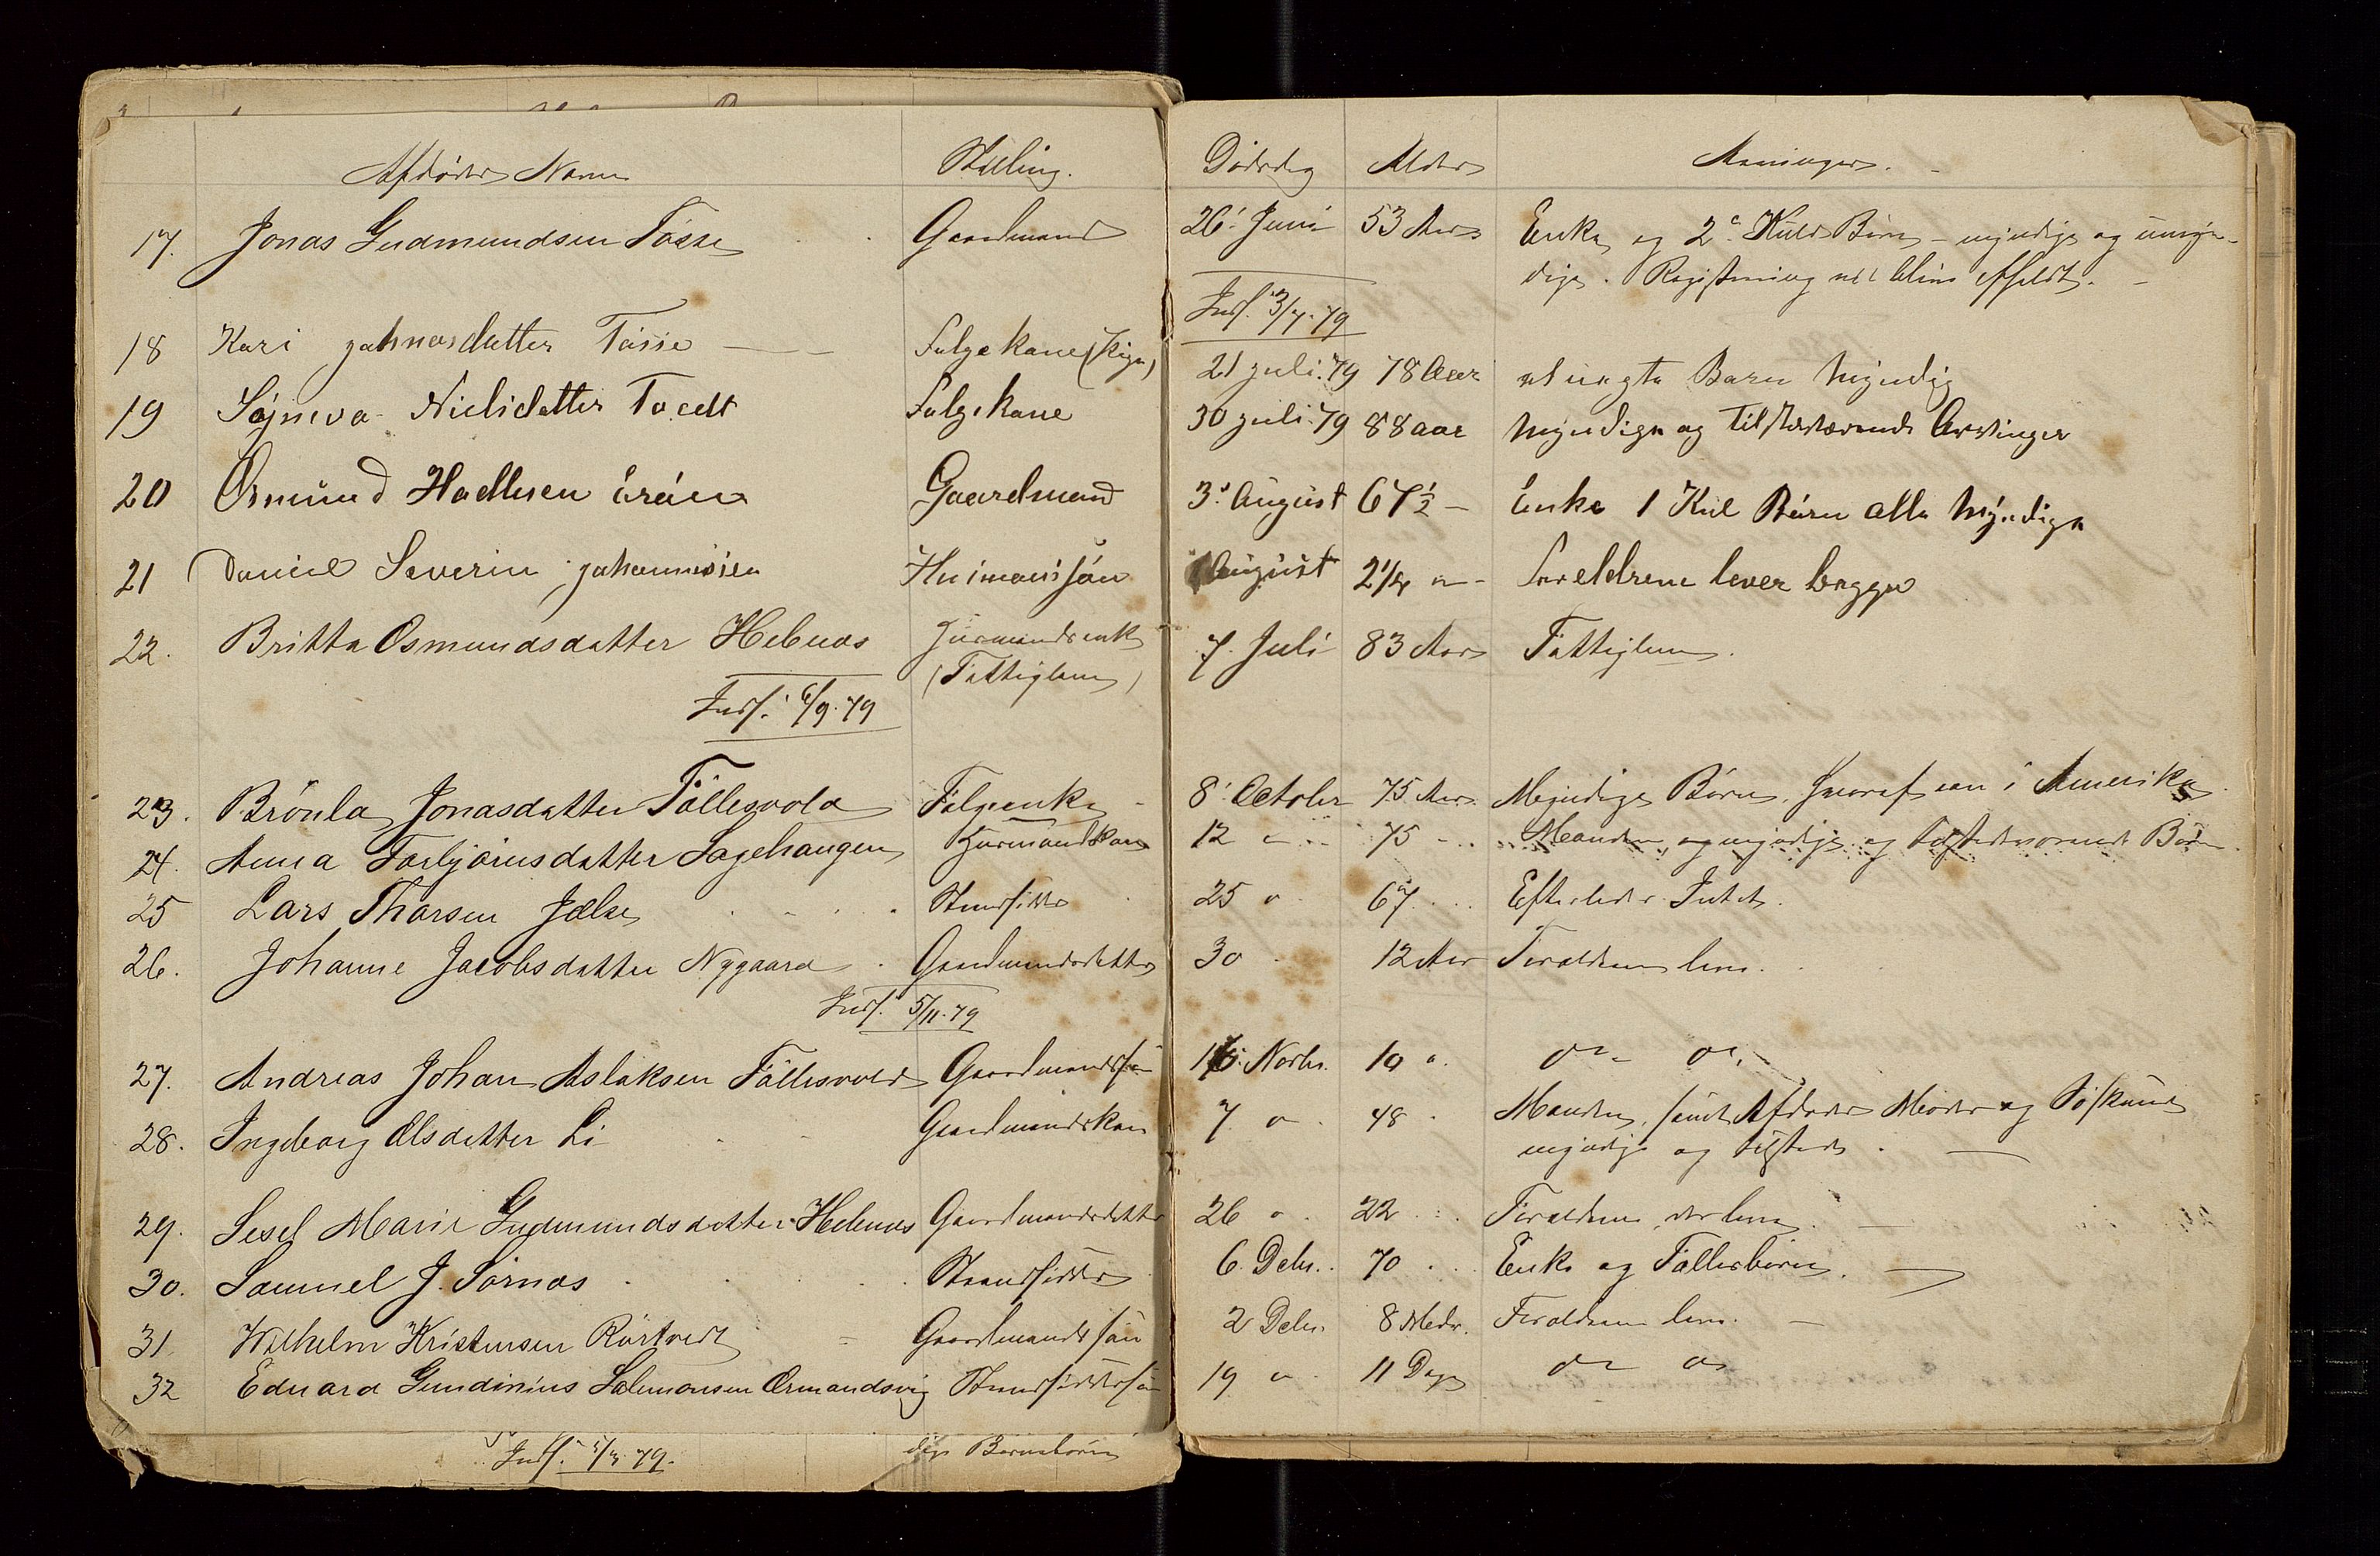 Afdødes Navn Stilling. Dødsdag Alder Anmingr.
17. Jonas Gudmundsen Tøsse Gaardmand 26' Juni 53 Aar Enke og 2' Kuld Børn - myndige og umyn-
dige. Registrering
Inds. 3/7.79
18 Kari Johnasdatter Tøsse Følgekone 21 juli.79 78 Aar et uegte Barn Myndig
19 Nielsdatter Følgekone 30 juli.79 88 aar Myndige og Tilstedeværende Arvinger
20 Osmund Gaardmand 3' August 67½ - Enke 1 Kul Børn alle Myndige
21 Daniel Severin Johannessen Husmansøn August 2¼ " - Foreldrene lever begge
22. Britta Osmundsdatter Hebnes Huusmandsenke 7. Juli 83 Aar Fattiglem.
(Fattiglem)
Inds. 6/9.79
23. Jonasdatter Fællesvold Følgeenke 8' October 75 Aar. Myndige Børn, hvoraf een i Amerika.
24. Anna Torbjørnsdatter Sagehaugen Huusmandskone 12 " 75 - Manden, og myndige og tilstedeværende Børn.
25 Lars Thorsen Jælse Strandsidder 25 " 67 Efterlader Intet.
26. Johanne Jacobsdatter Nygaard Gaardmandsdatter 30 12 Aar Forældrene leve.
Inds. 5/11.79
27. Andreas Johan Aslaksen Fællesvold Gaardmandssøn Novbr. 10 " do do
28. Ingeborg Olsdatter Li Gaardmandskone 7 " 48 Manden, samt Afdødes Moder og Søskende
myndige og tilstede.
29. Sesel Marie Gudmundsdatter Hebnes Gaardmandsdatter 26 " 22 Forældrene, der leve.
30. Samuel J. Sørnes Strandsidder 6 Debr. 70 Enke og Fællesbørn.
31 Wilhelm Kristensen Rørtvedt Gaardmandssøn 2 Debr. 8 Mdr. Forældrene leve.
32 Eduard Gundinius Salemonsen Ormandsvig Strandsiddersøn 19 " 11 Dage do do
Inds. 79. dige Børnebørn